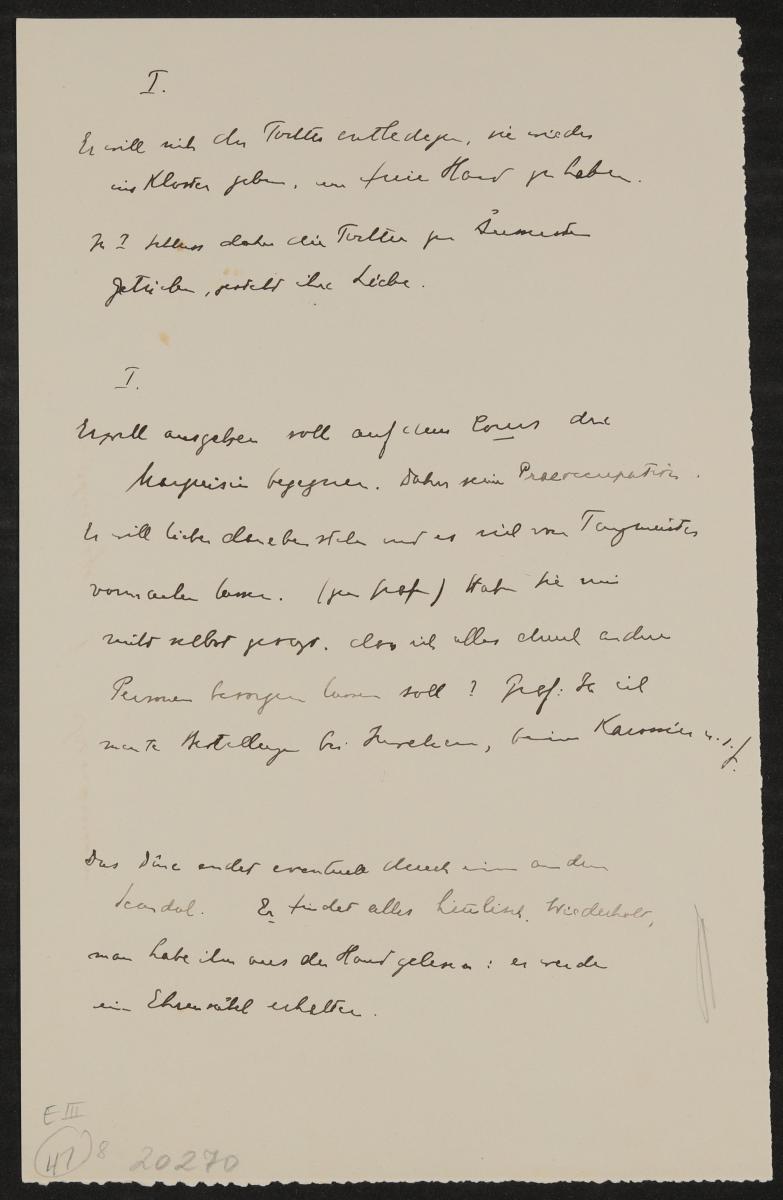 I.
Er will sich der Tochter entledigen, sie wieder
ins Kloster geben, um freie Hand zu haben.
daher die Tochter zur
getrieben, ihre Liebe.
I.
Er will ausgehen soll auf dem Corus die
Marquisin begegnen. Daher seine Praeoccupation.
Er will lieber daneben stehn und es sich vom Tanzmeister
vormachen lassen. (zu Graf) Haben Sie mir
nicht selbst gesagt, dass ich alles durch andere
Personen besorgen lassen soll? Graf: Ja ich
machte Bestellungen bei Juwelieren, beim u.s.f.
Das Diner endet eventuell durch einen andern
Scandal. Er findet alles Wiederholt,
man habe ihm aus der Hand gelesen: er werde
ein erhalten.
E III
41 8 20270